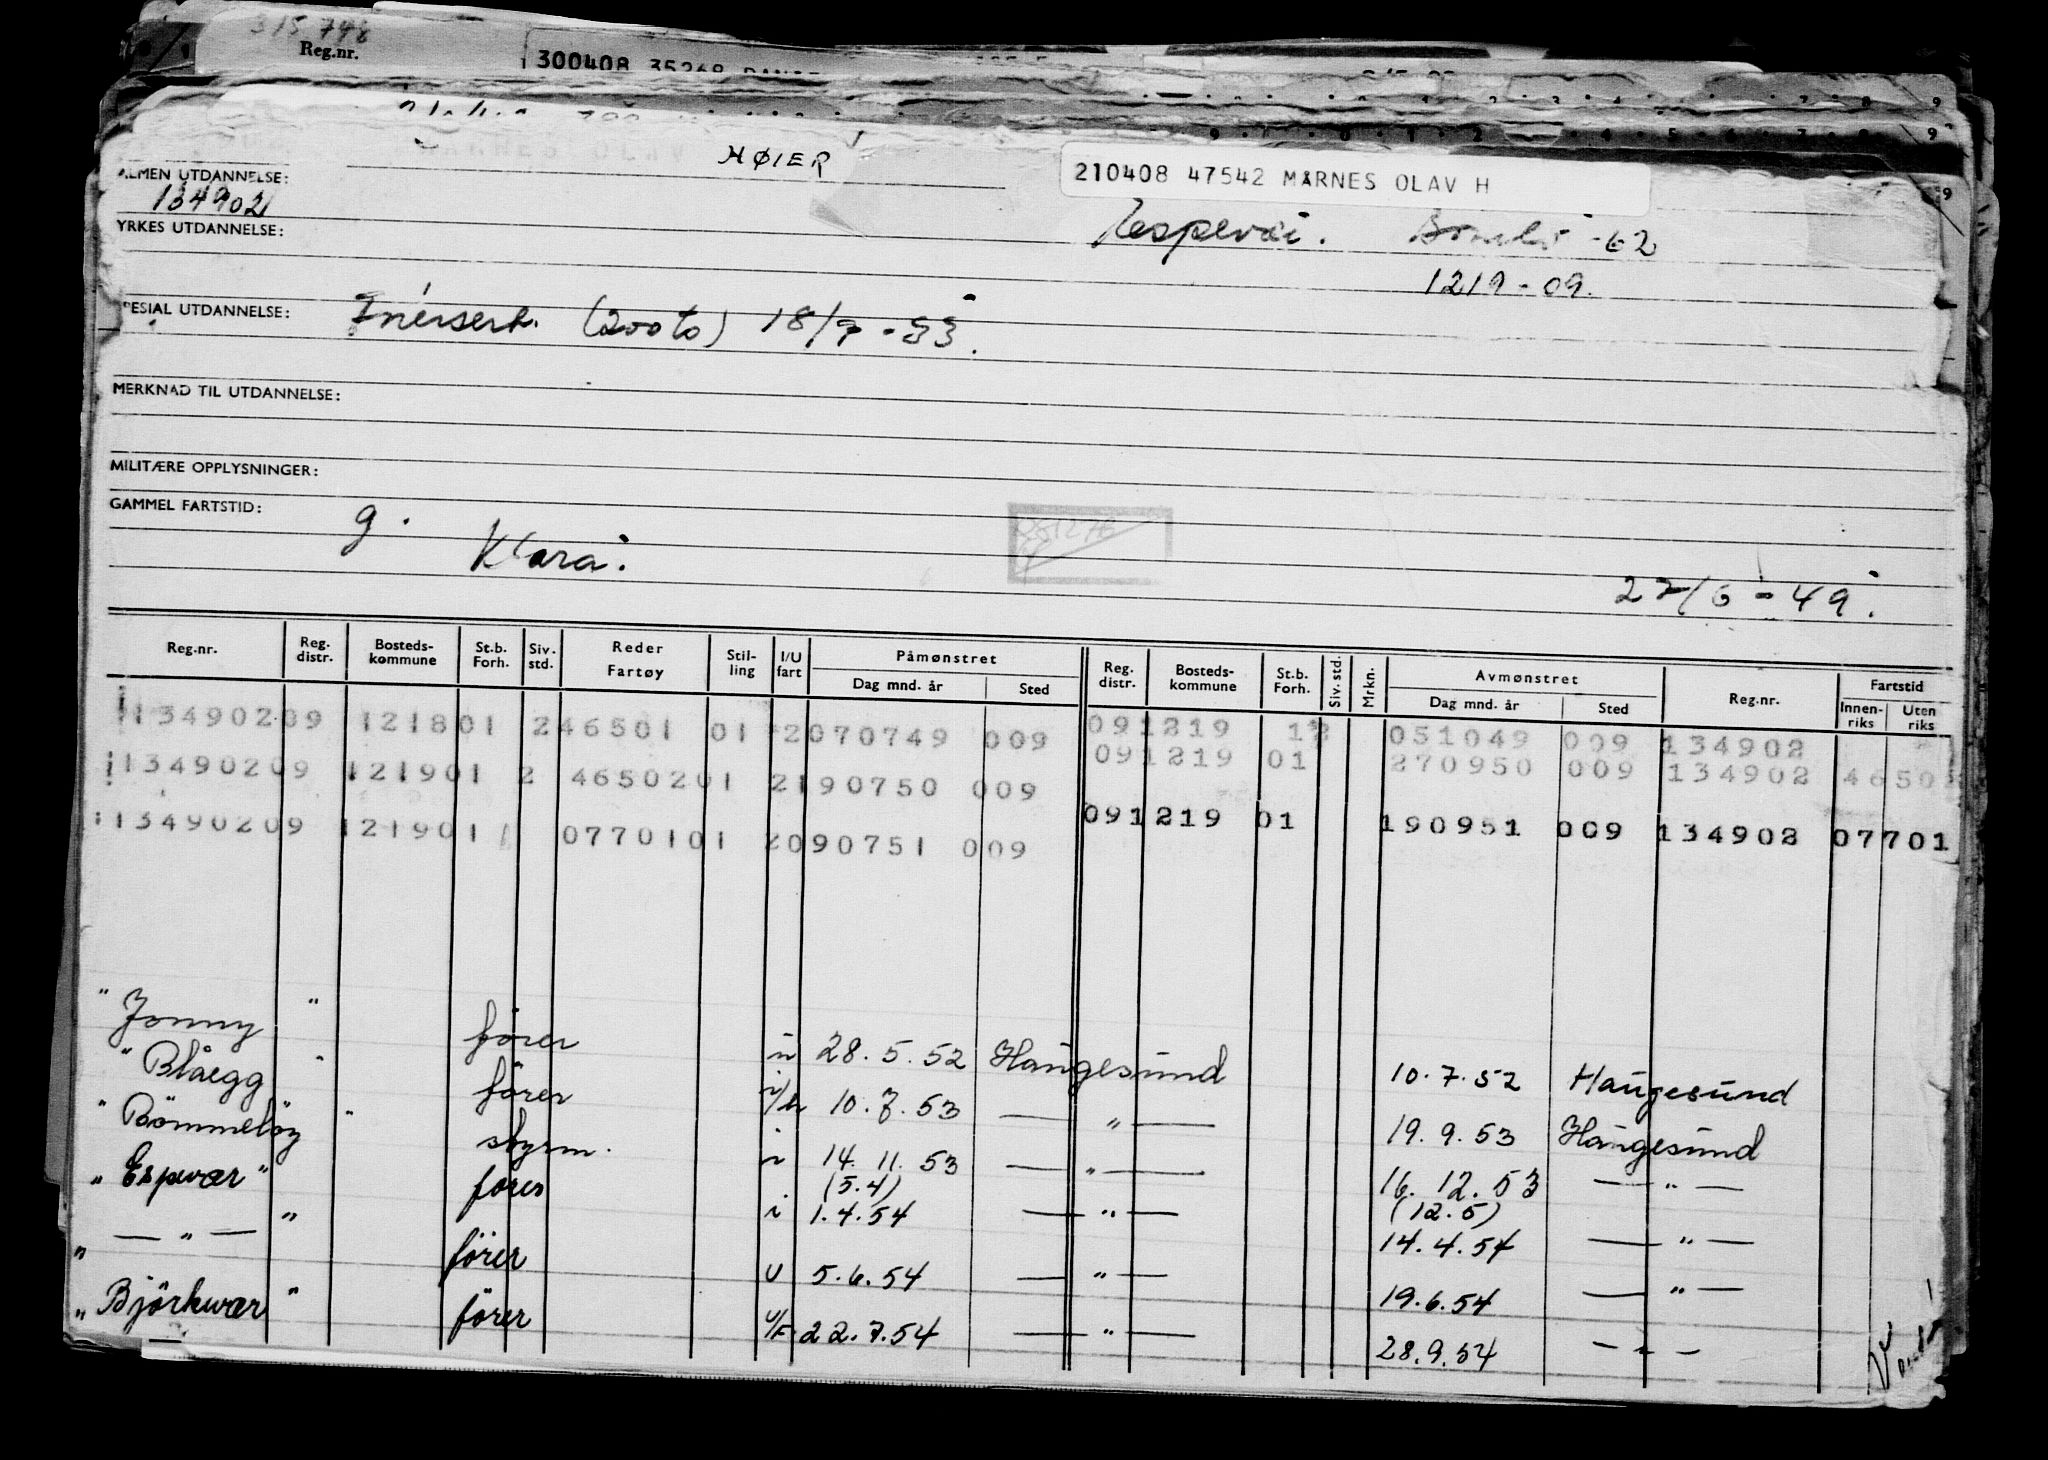 315 798
Reg.nr.
300408 35268
HØIER
210408 47542 MARNES OLAV H
ALMEN UTDANNELSE:
134902
YRKES UTDANNELSE:
Espevær. Bømlo -62
1219-09.
SPESIAL UTDANNELSE: (200 to) 18/9-53.
MERKNAD TIL UTDANNELSE:
MILITÆRE OPPLYSNINGER:
GAMMEL FARTSTID:
g. Klara.
22/6-49.
Reg.nr. Reg. distr. Bosteds- kommune St.b. Forh. Siv. std. Reder Fartøy Stil- ling I/U fart Påmønstret Dag mnd. år Sted Reg. distr. Bosteds- kommune St.b. Forh. Siv. std. Mrkn. Avmønstret Dag mnd. år Sted Reg.nr. Fartstid Innen- riks Uten riks
13490209 121801 246501 01 2070749 009 091219 051049 009 134902
13490209 121901 2 4650201 2190750 009 091219 01 270950 009 134902 46502
13490209 121901 0770101 2090751 009 091219 01 190951 009 134902 07701
" Jonny " fører u 28.5.52 Haugesund 10.7.52 Haugesund
" Blåegg " fører 10.7.53 — " — 19.9.53 Haugesund
" Bömmelöy " styrm. i 14.11.53 — " — 16.12.53 — " —
" Espevær " fører i (5.4) 1.4.54 — " — (12.5) 14.4.54 — " —
" — " — " förer U 5.6.54 — " — 19.6.54 — " —
" Björkvær " förer 22.7.54 — " — 28.9.54 — " —